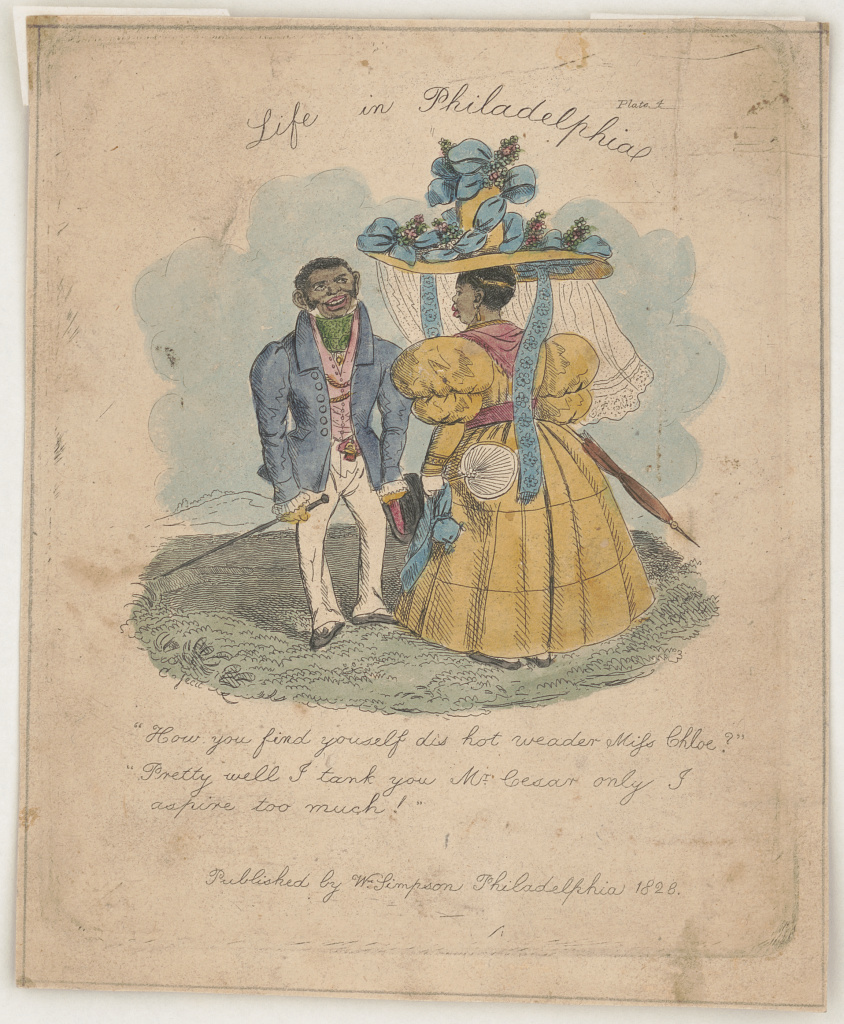 Life in Philadelphia
Plate 4
"How you find youself dis hot weader Miss Chloe?"
"Pretty well I tank you Mr. Cesar only I
aspire too much!"
Published by Wm. Simpson Philadelphia 1828.